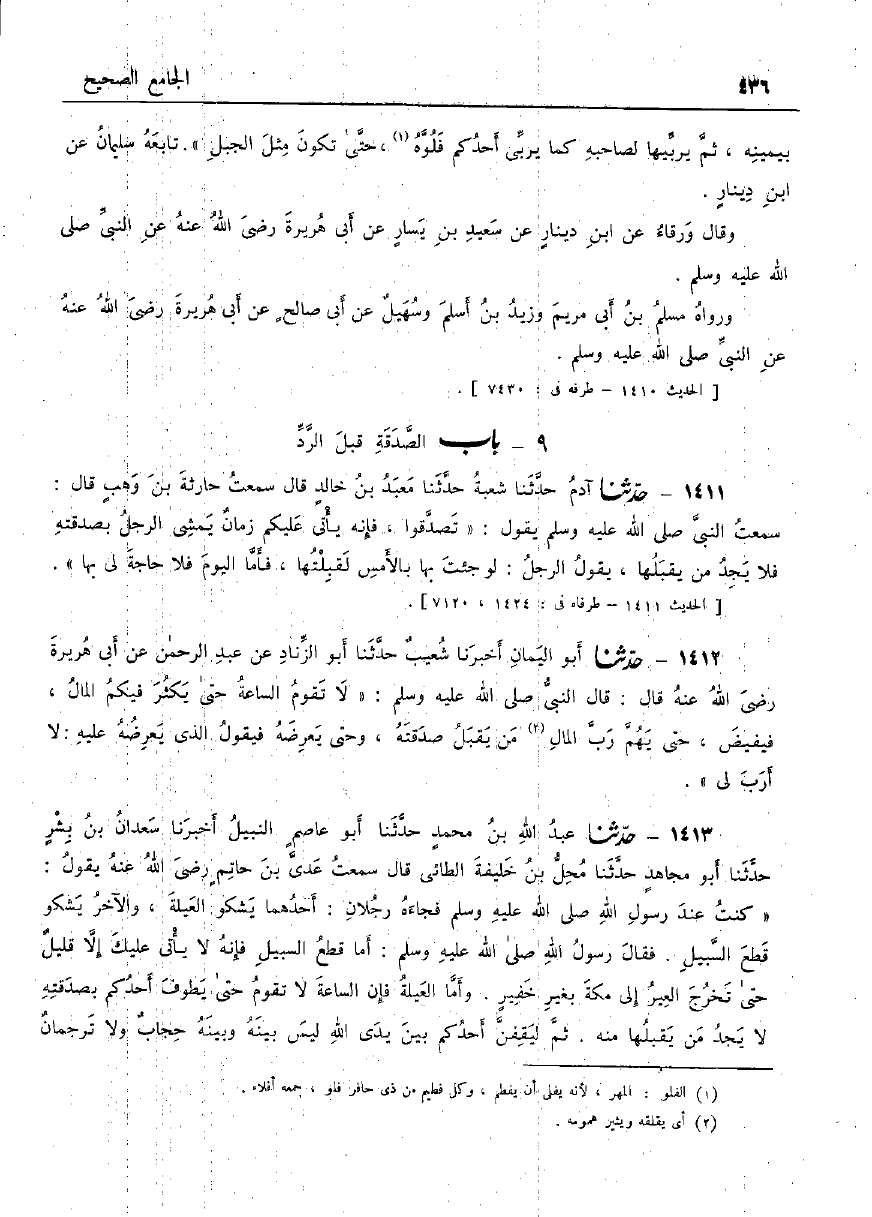 ٤٣٦ الجامع الصحيح
بيمينِه ، ثمَّ يربِّيها لصاحبهِ كما يربِّى أحدُكم فَلُوَّهُ (١) ، حتَّىٰ تكونَ مِثلَ الجبلِ » . تابعَهُ سليمانُ عن
ابنِ دِينارٍ .
وقال وَرقاءُ عن ابنِ دينارٍ عن سَعيدِ بنِ يَسارٍ عن أبى هُريرةَ رضىَ اللهُ عنهُ عنِ النبىِّ صلى
الله عليه وسلم .
ورواهُ مسلمُ بنُ أبى مريمَ وزيدُ بنُ أسلمَ وسُهَيلٌ عن أبى صالحٍ عن أبى هُريرةَ رضىَ اللهُ عنهُ
عنِ النبىِّ صلى الله عليه وسلم .
[ الحديث ١٤١٠ – طرفه فى : ٧٤٣٠ ] .
٩ – باب الصَّدَقَةِ قبلَ الرَّدِّ
١٤١١ – حدّثنا آدمُ حدَّثَنا شعبةُ حدَّثَنا مَعبَدُ بنُ خالدٍ قال سمعتُ حارثةَ بنَ وَهبٍ قال :
سمعتُ النبىَّ صلى الله عليه وسلم يقول : « تَصدَّقوا ، فإنه يأْتى عَليكم زمانٌ يَمشِى الرجلُ بصدقتهِ
فلا يَجِدُ من يقبَلُها ، يقولُ الرجلُ : لو جئتَ بها بالأمسِ لَقبِلْتُها ، فأمَّا اليومَ فلا حاجةَ لى بها » .
[ الحديث ١٤١١ – طرفاه فى : ١٤٢٤ ، ٧١٢٠ ] .
١٤١٢ – حدّثنا أبو اليَمانِ أخبرَنا شُعيبٌ حدَّثَنا أبو الزِّنادِ عن عبدِ الرحمنِ عن أبى هُريرةَ
رضىَ اللهُ عنهُ قال : قال النبىُّ صلى الله عليه وسلم : « لَا تَقومُ الساعةُ حتىٰ يَكثُرَ فيكمُ المالُ ،
فيفيضَ ، حتى يَهُمَّ رَبَّ المالِ (٢) مَن يَقبَلُ صدَقتَهُ ، وحتى يَعرِضَهُ فيقولُ الذى يَعرِضُهُ عليهِ : لا
أرَبَ لى » .
١٤١٣ – حدّثنا عبدُ اللهِ بنُ محمدٍ حدَّثَنا أبو عاصمٍ النبيلُ أخبرَنا سَعدانُ بنُ بِشْرٍ
حدَّثَنا أبو مجاهدٍ حدَّثَنا مُحِلُّ بنُ خَليفةَ الطائى قال سمعتُ عَدىَّ بنَ حاتمٍ رضىَ اللهُ عنهُ يقولُ :
« كنتُ عندَ رسولِ اللهِ صلى الله عليهِ وسلم فجاءهُ رجُلانِ : أحدُهما يَشكو العَيلةَ ، والآخرُ يَشكو
قَطعَ السَّبيلِ . فقالَ رسولُ اللهِ صلىٰ الله عليهِ وسلم : أما قطعُ السبيلِ فإنهُ لا يأْتى عليكَ إلَّا قليلٌ
حتىٰ تَخرُجَ العِيرُ إلى مكةَ بغيرِ خَفيرٍ . وأمَّا العَيلةُ فإن الساعةَ لا تقومُ حتىٰ يَطوفَ أحدُكم بصدَقتِهِ
لا يَجدُ مَن يَقبلُها منه . ثمَّ لَيَقِفنَّ أحدُكم بينَ يدَىِ اللهِ ليسَ بينَهُ وبينَهُ حِجابٌ ولا تَرجمانٌ
(١) الفلو : المهر ، لأنه يفلى أن يفطم ، وكل فطيم من ذى حافر فلو ، جمعه أفلاء .
(٢) أى يقلقه ويثير همومه .